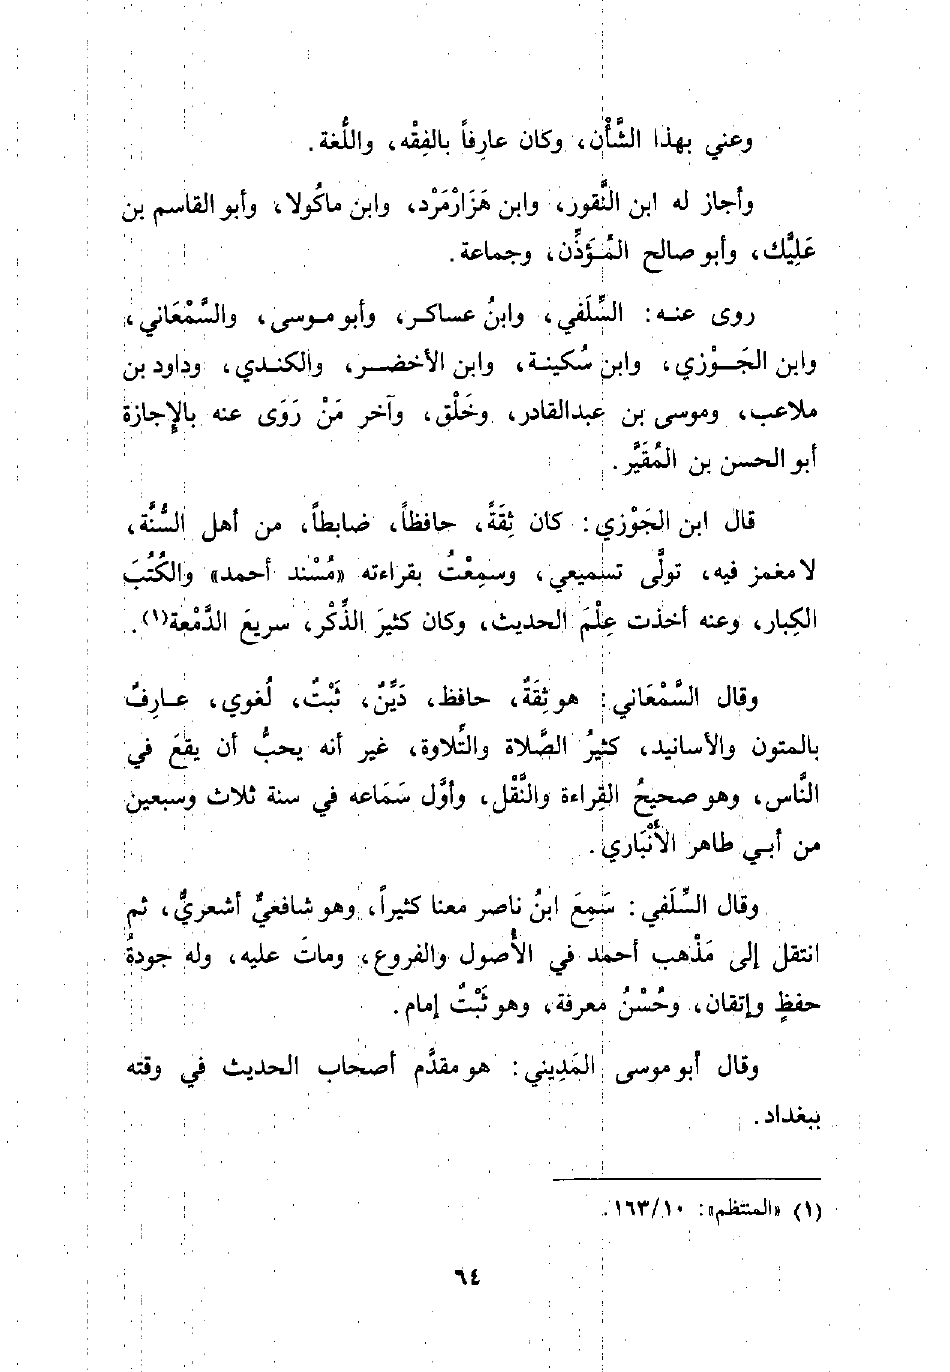 وعني بهذا الشَّأْن، وكان عارِفاً بالفِقْه، واللُّغة.
وأجاز له ابن النَّقور، وابن هَزَارْمَرْد، وابن ماكُولا، وأبو القاسم بن
عَلِيَّك، وأبو صالح المُؤَذِّن، وجماعة.
روى عنه: السِّلَفي، وابنُ عساكر، وأبو موسى، والسَّمْعَاني،
وابن الجَوْزي، وابن سُكينة، وابن الأخضر، والكندي، وداود بن
ملاعب، وموسى بن عبدالقادر، وخَلْق، وآخر مَنْ رَوَى عنه بالإِجازة
أبو الحسن بن المُقَيَّر.
قال ابن الجَوْزي: كان ثِقَةً، حافظاً، ضابطاً، من أهل السُّنَّة،
لا مغمز فيه، تولَّى تسميعي، وسمِعْتُ بقراءته «مُسْند أحمد» والكُتُبَ
الكِبار، وعنه أخذت عِلْمَ الحديث، وكان كثيرَ الذِّكْر، سريعَ الدَّمْعة(١).
وقال السَّمْعَاني: هو ثِقَةٌ، حافظ، دَيِّنٌ، ثَبْتٌ، لُغوي، عارِفٌ
بالمتون والأسانيد، كثيرُ الصَّلاة والتِّلاوة، غير أنه يحبُّ أن يقعَ في
النَّاس، وهو صحيحُ القِراءة والنَّقْل، وأوَّل سَمَاعه في سنة ثلاث وسبعين
من أبي طاهر الأَنْبَاري.
وقال السِّلَفي: سَمِعَ ابنُ ناصر معنا كثيراً، وهو شافعيٌّ أشعريٌّ، ثم
انتقل إلى مَذْهب أحمد في الأُصول والفروع، وماتَ عليه، وله جودةُ
حفظٍ وإتقان، وحُسْنُ معرفة، وهو ثَبْتٌ إمام.
وقال أبو موسى المَدِيني: هو مقدَّم أصحاب الحديث في وقته
ببغداد.
(١) «المنتظم»: ١٦٣/١٠.
٦٤